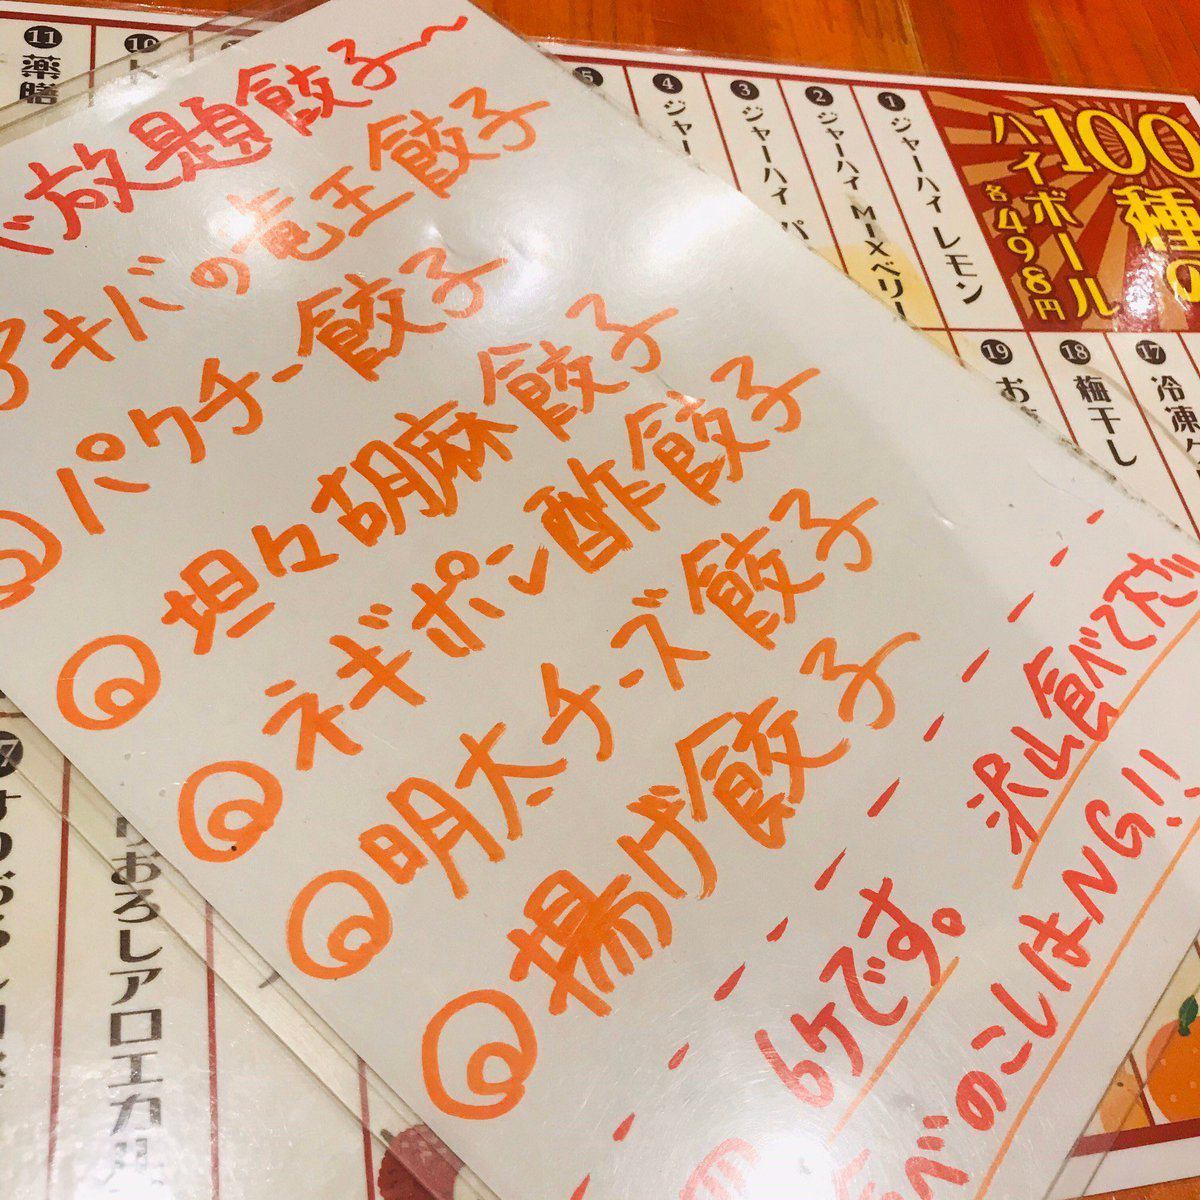 べ放題餃子〜
アキバの竜王餃子
パクチー餃子
坦々胡麻餃子
ネギポン酢餃子
明太チーズ餃子
揚げ餃子
6ケです。
沢山食べて下さ
べのこしはNG!!
100種の
ハイボール
各498円
1 ジャーハイ レモン
2 ジャーハイ MIXベリー
3 ジャーハイ パ
4 ジャー
5
10
11 薬膳
17 冷凍
18 梅干し
19 お
りおろしアロエ